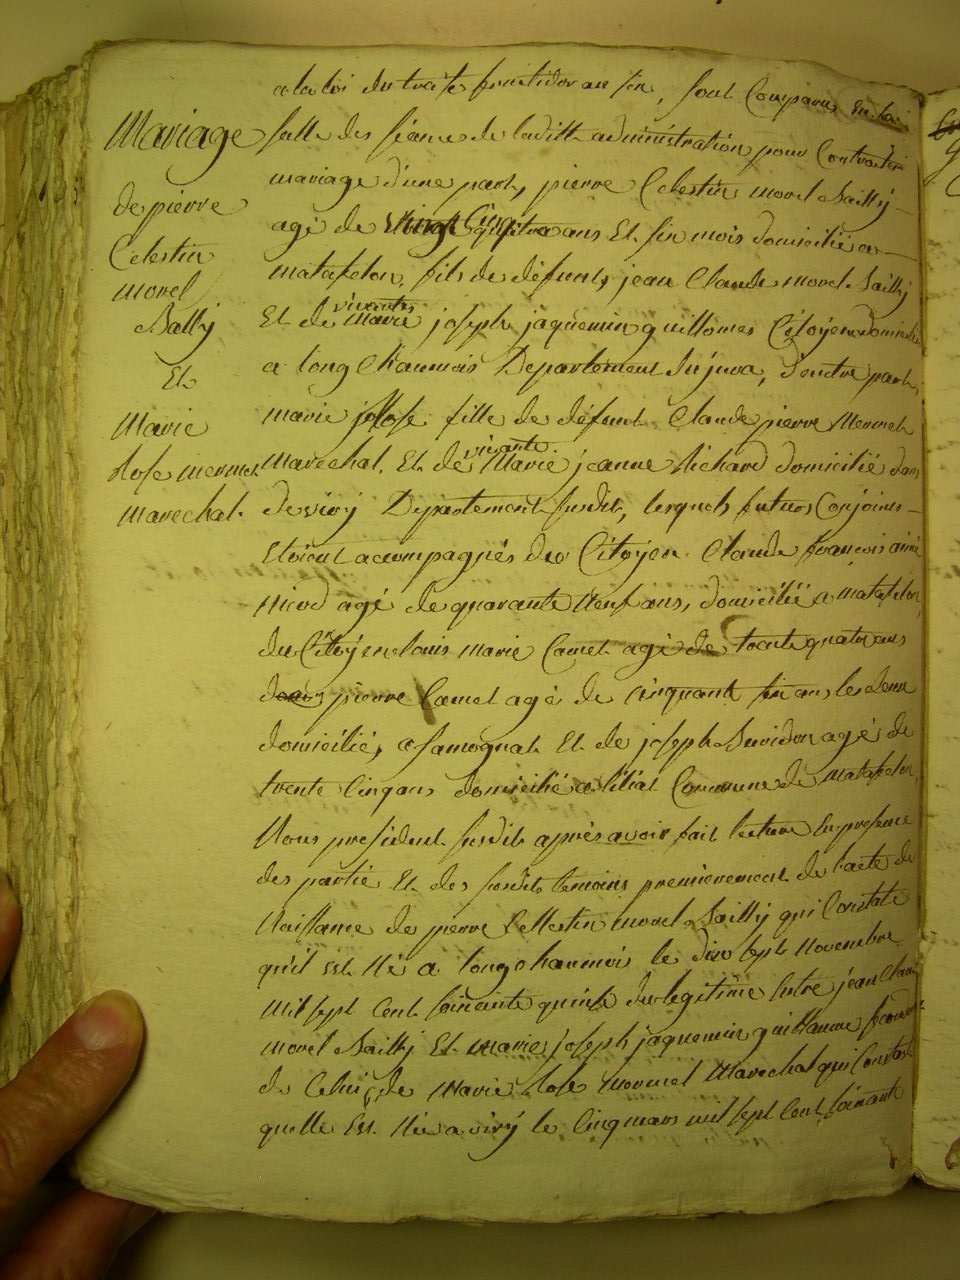 a la loi du treize fructidor an six, sont Comparus en la
Mariage
de pierre
Celestin
morel
Sailly
Et
Marie
Rose mermet
Marechal.
salle des séance de laditte administration pour Contracter
mariage d'une part, pierre Celestin morel Sailly
agé de Vingt Cinq ans Et six mois domicilié a
matafelon, fils de défunt jean Claude morel Sailly
Et de vivante marie joseph jaquemin guillomes Citoyen domicilié
a longchaumois Departement du jura, d'autre part,
marie Rose fille de défunt Claude pierre Mermet
Marechal. Et de vivante Marie jeanne Richard domicilié dans
de viry Departement susdit, lesquels futurs Conjoins
Etoient accompagnés des Citoyen Claude francois aimé
Nicod agé de quarante Neuf ans, domicilié a matafelon,
du Citoyen louis marie Camet agé de trente quatre ans
pierre Camet agé de cinquante six ans les deux
domicilié, a samognat Et de joseph Buvidon agé de
trente Cinq ans domicilié a liliat Commune de matafelon,
Nous president susdit après avoir fait lecture En presence
des partie Et des susdits temoins premierement de l'acte de
Naissance de pierre Cellestin morel Sailly qui Constate
qu'il est Né a longchaumois le dix sept Novembre
mil sept Cent soixante quinze du legitime Entre jean Claude
morel Sailly Et marie joseph jaquemin guillaume secondement
de Celui de Marie Rose mermet Marechal qui Constate
quelle Est Née a viry le Cinq mars mil sept Cent soixante